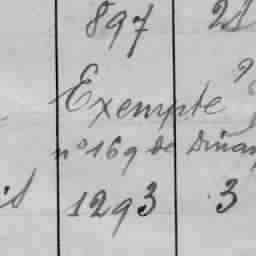 897 21
Exempte
n° 169 de Dinan
1293 3